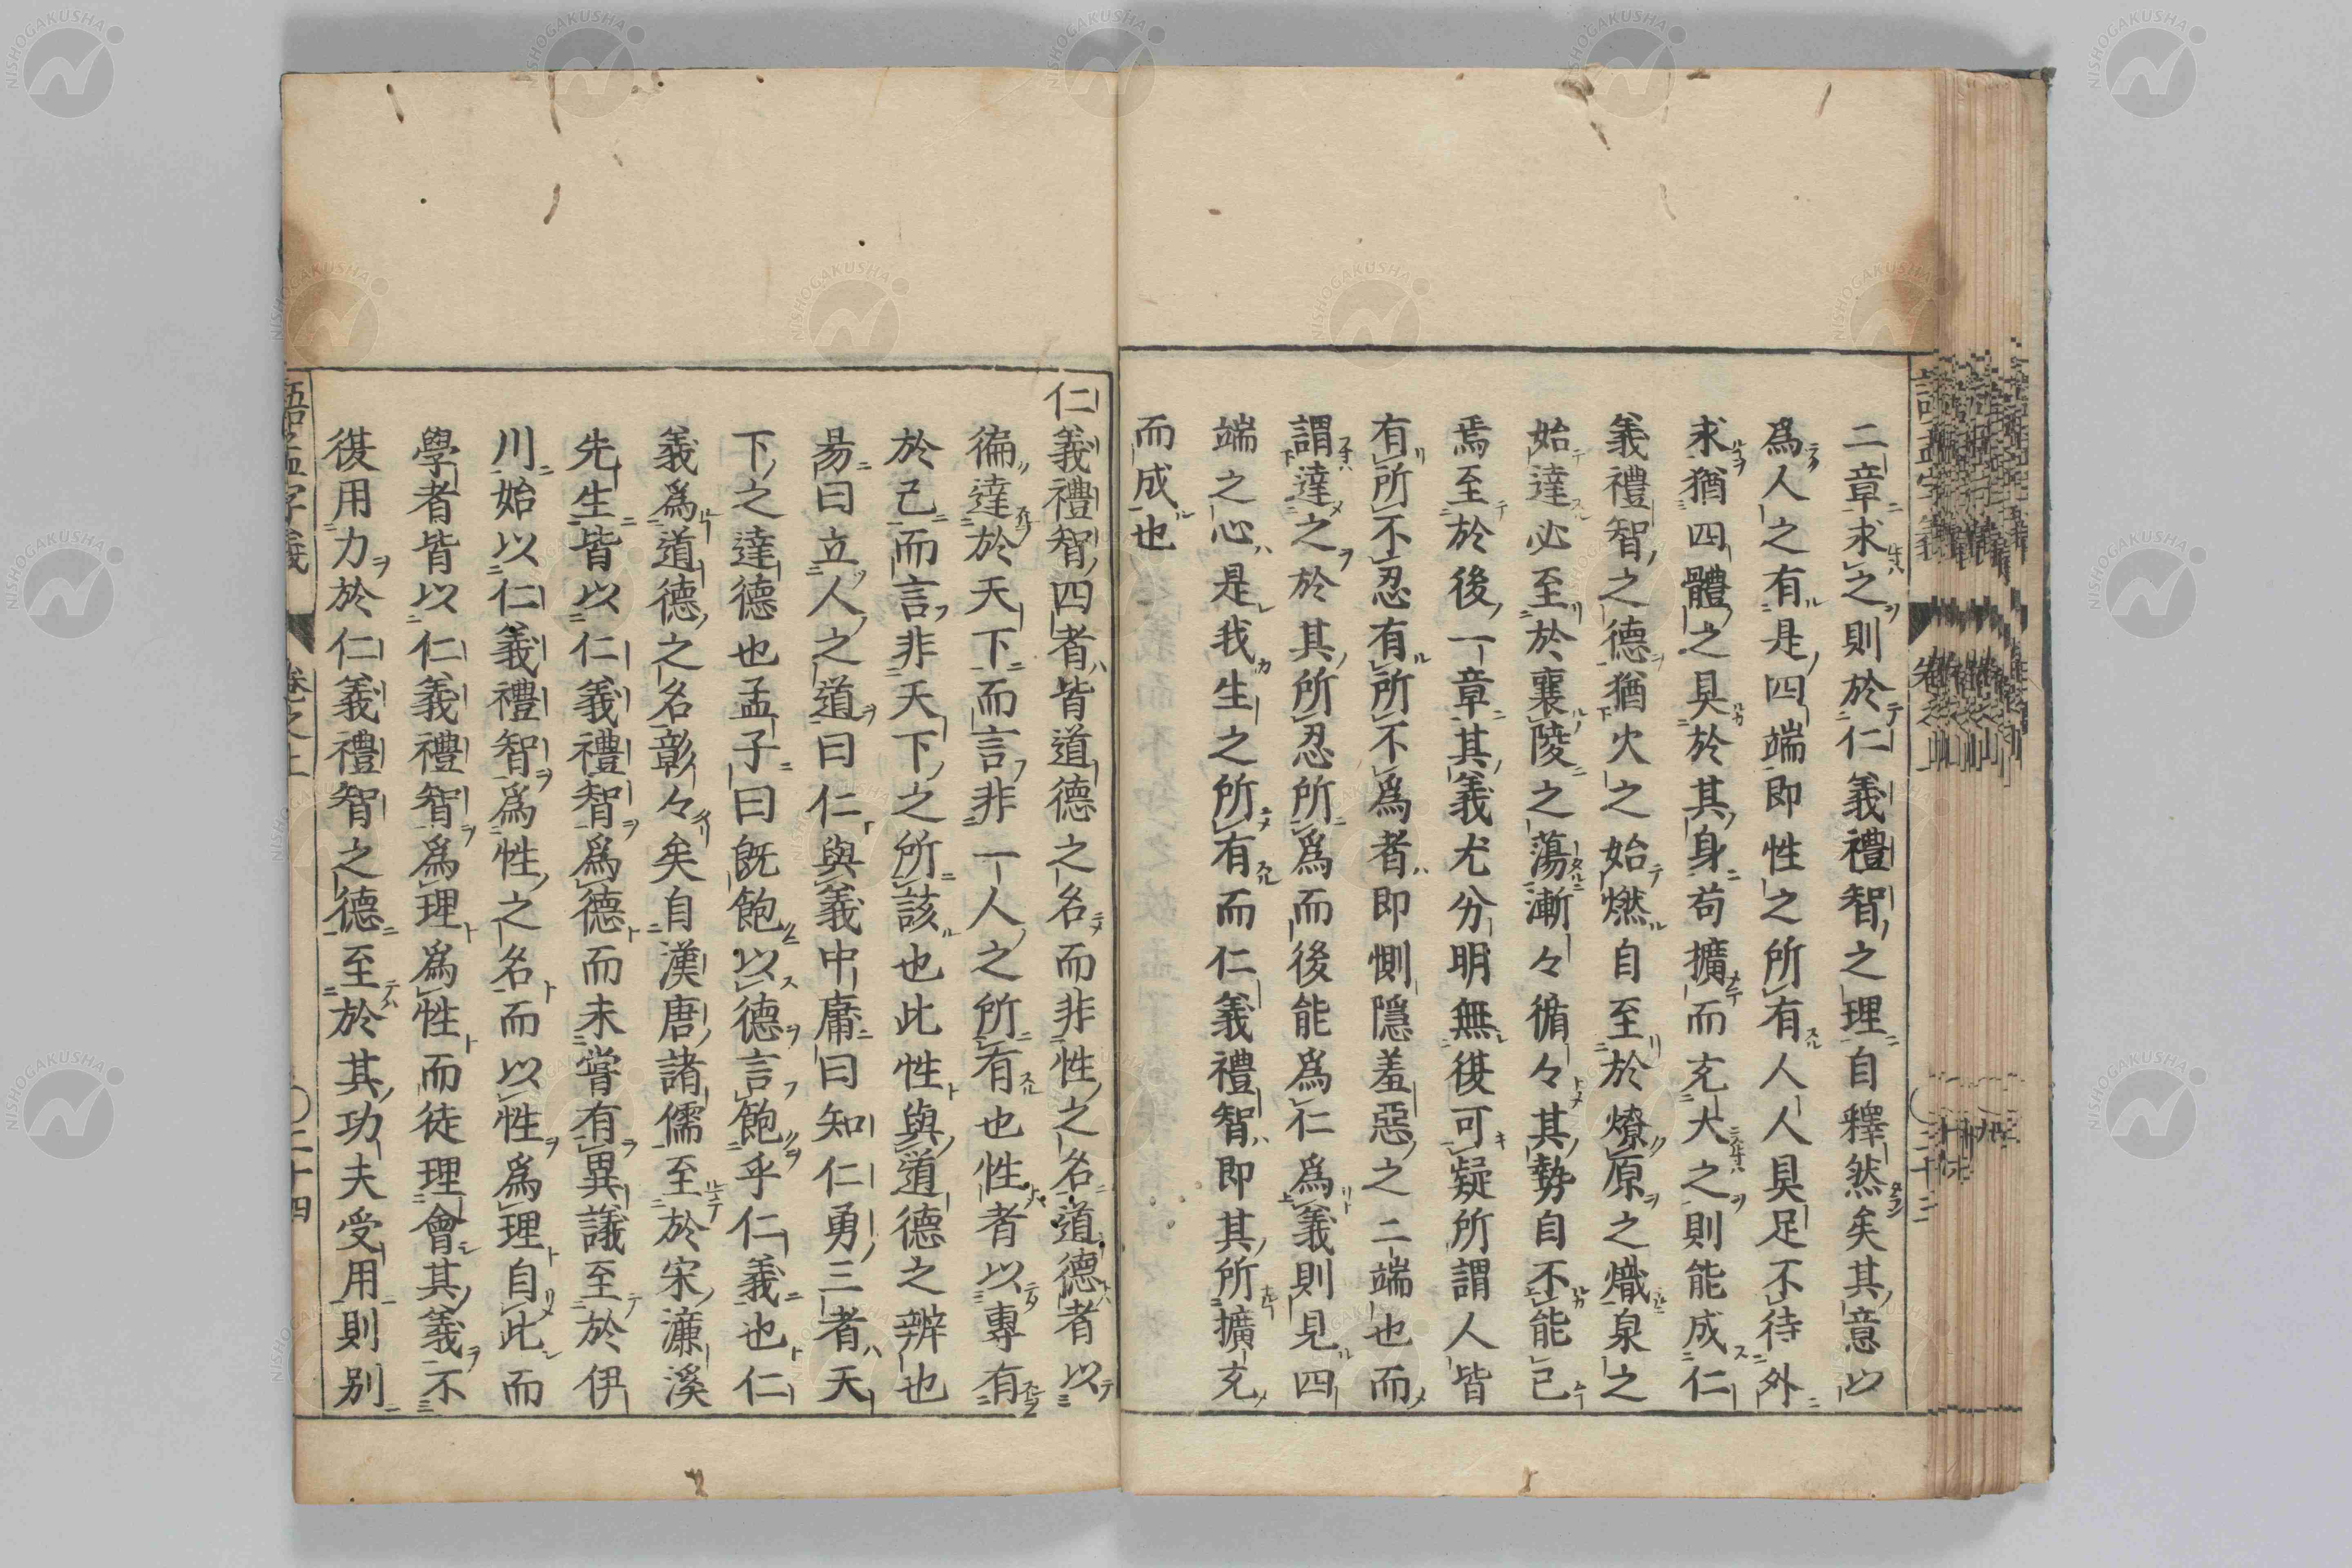 二章求之則於仁義禮智之理自釋然矣其意以
爲人之有是四端即性之所有人人具足不待外
求猶四體之具於其身苟擴而充大之則能成仁
義禮智之德猶火之始燃自至於燎原之熾泉之
始達必至於襄陵之蕩漸々循々其勢自不能已
焉至於後一章其義尤分明無復可疑所謂人皆
有所不忍有所不爲者即惻隱羞惡之二端也而
謂達之於其所忍所爲而後能爲仁爲義則見四
端之心是我生之所有而仁義禮智即其所擴充
而成也
仁義禮智四者皆道德之名而非性之名道德者以
徧達於天下而言非一人之所有也性者以專有
於己而言非天下之所該也此性與道德之辨也
易曰立人之道曰仁與義中庸曰知仁勇三者天
下之達德也孟子曰既飽以德言飽乎仁義也仁
義爲道德之名彰々矣自漢唐諸儒至於宋濂溪
先生皆以仁義禮智爲德而未嘗有異議至於伊
川始以仁義禮智爲性之名而以性爲理自此而
學者皆以仁義禮智爲理爲性而徒理會其義不
復用力於仁義禮智之德至於其功夫受用則別
語孟字義 卷之上 〇二十四
NISHOGAKUSHA